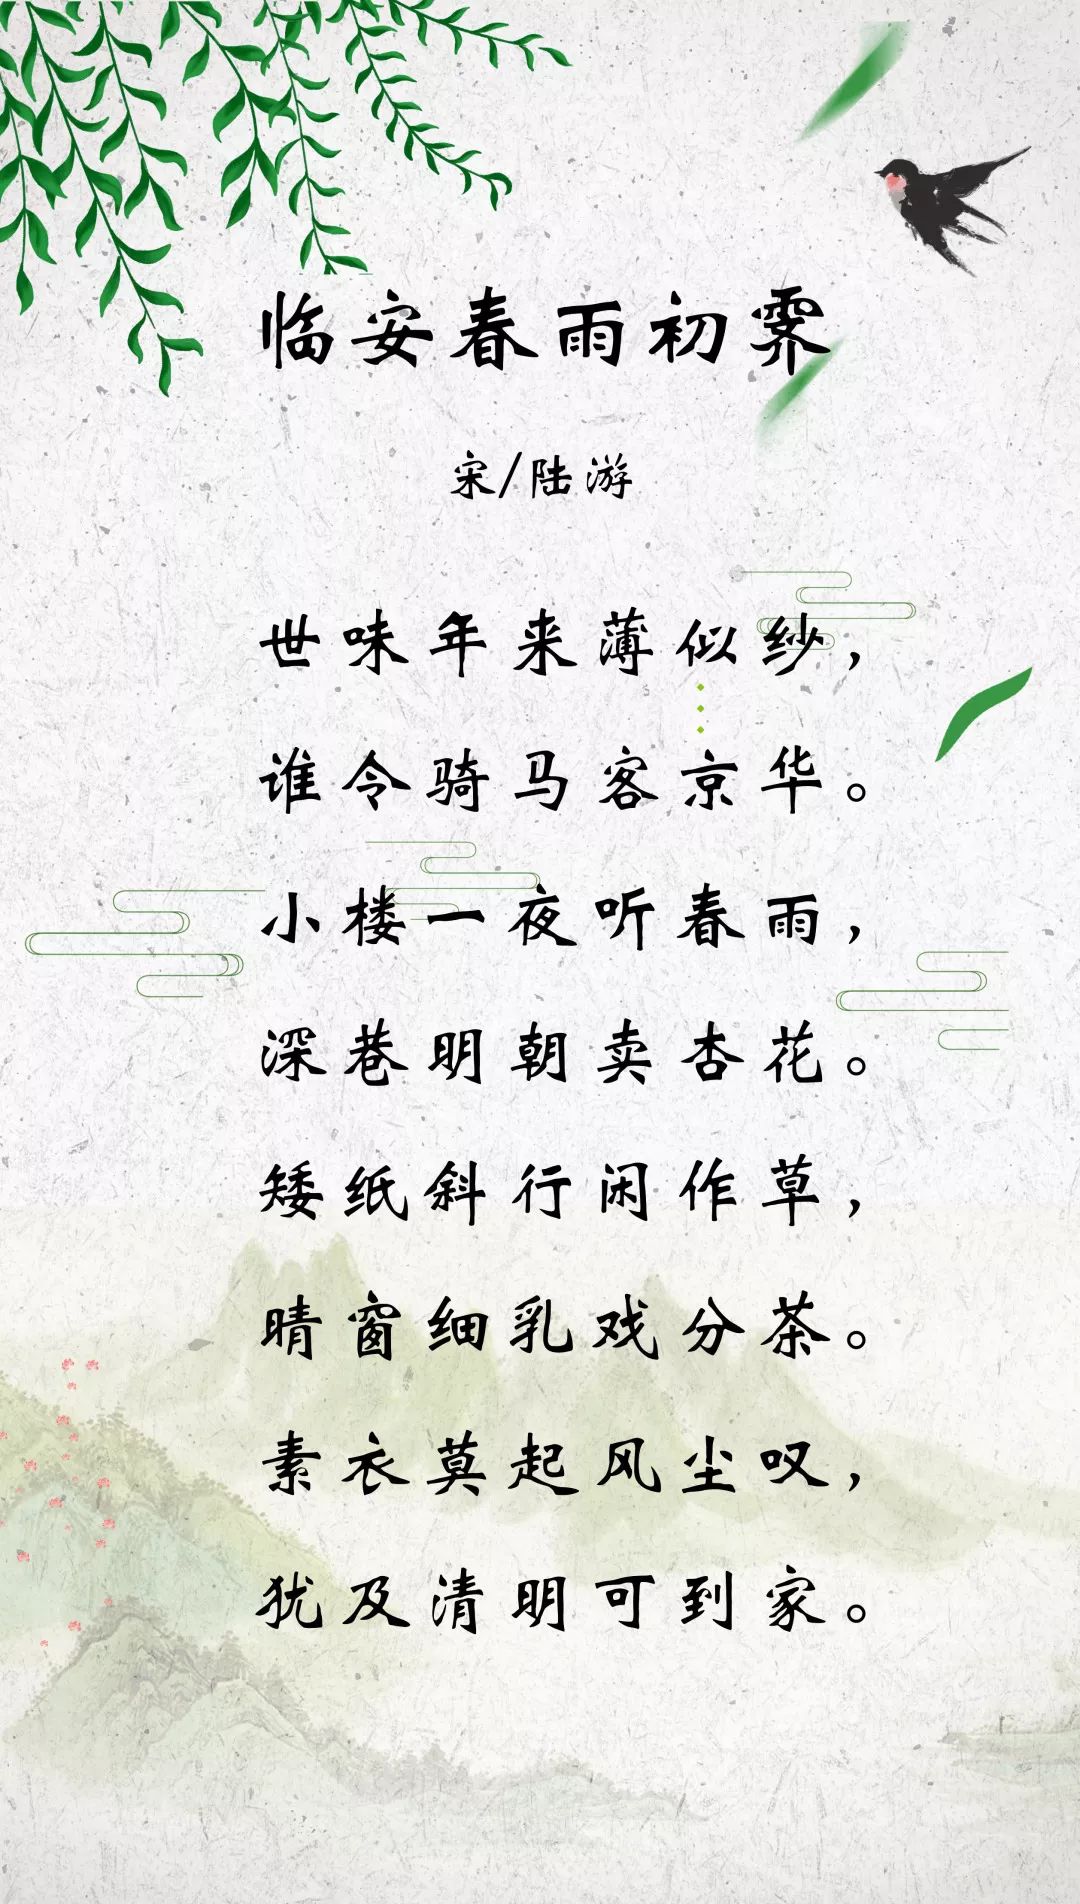 临安春雨初霁
宋/陆游
世味年来薄似纱，
谁令骑马客京华。
小楼一夜听春雨，
深巷明朝卖杏花。
矮纸斜行闲作草，
晴窗细乳戏分茶。
素衣莫起风尘叹，
犹及清明可到家。